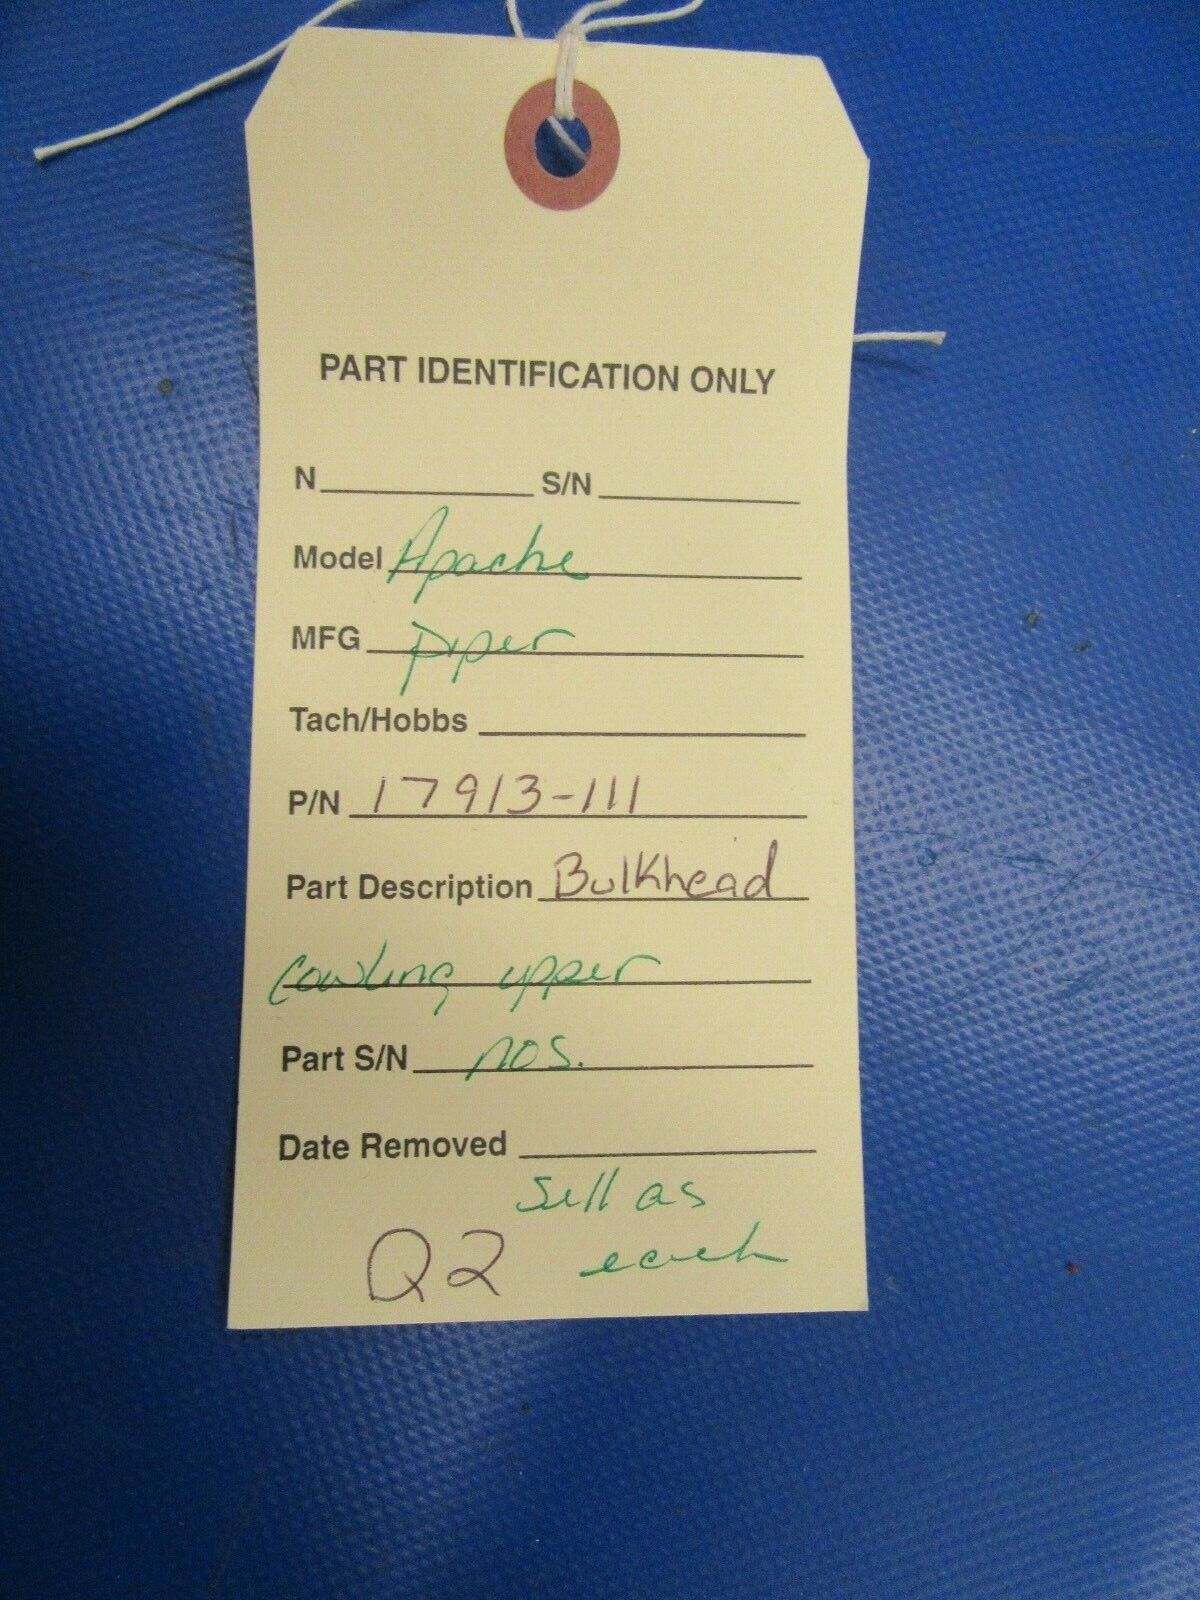 PART IDENTIFICATION ONLY
N S/N
Model Apache
MFG Piper
Tach/Hobbs
P/N 17913-111
Part Description Bulkhead
cowling upper
Part S/N nos.
Date Removed
Sell as
Q2 each